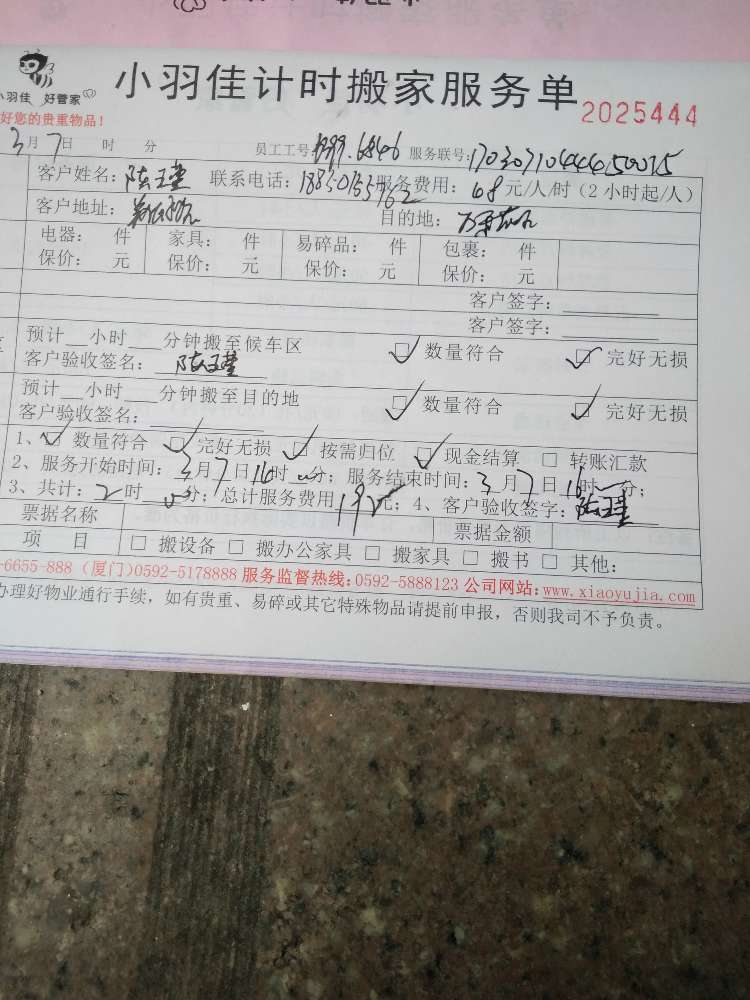 小羽佳 好管家
小羽佳计时搬家服务单 2025444
好您的贵重物品！
3月7日 时 分 员工工号: 服务联号:
客户姓名: 联系电话: 服务费用: 68元/人/时（2小时起/人）
客户地址: 目的地:
电器: 件 家具: 件 易碎品: 件 包裹: 件
保价: 元 保价: 元 保价: 元 保价: 元
客户签字:
客户签字:
预计__小时___分钟搬至候车区 数量符合 完好无损
客户验收签名:
预计__小时___分钟搬至目的地 数量符合 完好无损
客户验收签名:
1、数量符合 完好无损 按需归位 现金结算 转账汇款
2、服务开始时间: 3月7日16时 分; 服务结束时间: 3月7日 时 分;
3、共计: 2时 分; 总计服务费用 元; 4、客户验收签字:
票据名称 票据金额
项 目 搬设备 搬办公家具 搬家具 搬书 其他:
-6655-888（厦门）0592-5178888 服务监督热线: 0592-5888123 公司网站: www.xiaoyujia.com
办理好物业通行手续，如有贵重、易碎或其它特殊物品请提前申报，否则我司不予负责。